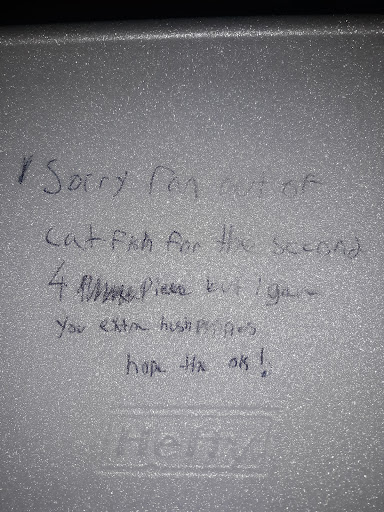 Sorry ran out of
cat fish for the second
4 Piece but I gave
you extra hushpuppies
hope the ok!
Hefty